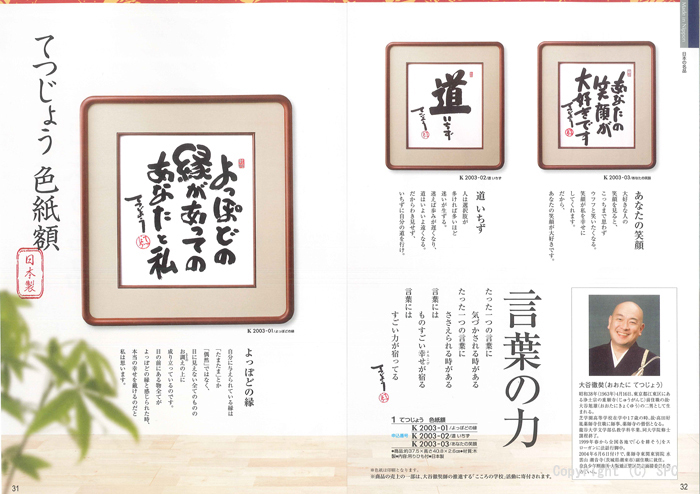 てつじょう 色紙額
日本製
よっぽどの
縁があっての
あなたと私
てつじょう
K 2003-01/よっぽどの縁
よっぽどの縁
自分に与えられている縁は
「たまたま」とか
「偶然」ではなく、
目に見えない全てのものの
お調えの上に
成り立っているのです。
目の前にある物全てが
よっぽどの縁と感じられた時、
本当の幸せを戴けるのだと
私は思います。
31
日本の名品
道
いちず
てつじょう
K 2003-02/道 いちず
あなたの
笑顔が
大好きです
てつじょう
K 2003-03/あなたの笑顔
あなたの笑顔
大好きな人の
笑顔を見ると、
こっちまで思わず
ウフフと笑いたくなる。
笑顔が私を幸せに
してくれます。
だから、
あなたの笑顔が大好きです。
道 いちず
人は選択肢が
多ければ多いほど
迷いが生ずる。
迷えば歩みが遅くなり、
道はいよいよ遠くなる。
だからわき見せず、
いちずに自分の道を行け。
言葉の力
たった一つの言葉に
気づかされる時がある
たった一つの言葉に時に
ささえられる時がある
言葉には
ものすごい幸せが宿る
言葉には
すごい力が宿ってる
てつじょう
大谷徹奘(おおたに てつじょう)
1 てつじょう 色紙額
申込番号
K 2003-01/よっぽどの縁
K 2003-02/道 いちず
K 2003-03/あなたの笑顔
●商品:約37.5×高さ40.8×2.6cm●材質:木製●内容:阿りひも付●日本製
※色紙は印刷となります。
※商品の売上の一部は、大谷徹奘師の推進する"こころの学校"活動に寄付されます。
Copyright (C) SPC
32